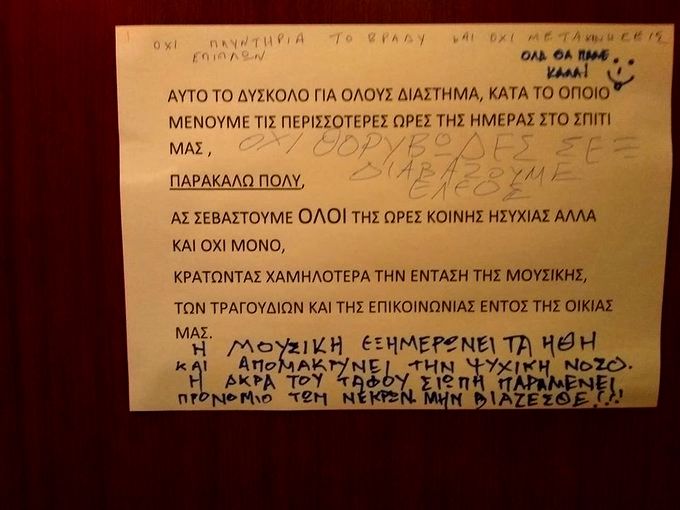 ΟΧΙ ΠΛΥΝΤΗΡΙΑ ΤΟ ΒΡΑΔΥ ΚΑΙ ΟΧΙ ΜΕΤΑΚΙΝΗΣΕΙΣ
ΕΠΙΠΛΩΝ
ΟΛΑ ΘΑ ΠΑΝΕ
ΚΑΛΑ!
ΑΥΤΟ ΤΟ ΔΥΣΚΟΛΟ ΓΙΑ ΟΛΟΥΣ ΔΙΑΣΤΗΜΑ, ΚΑΤΑ ΤΟ ΟΠΟΙΟ
ΜΕΝΟΥΜΕ ΤΙΣ ΠΕΡΙΣΣΟΤΕΡΕΣ ΩΡΕΣ ΤΗΣ ΗΜΕΡΑΣ ΣΤΟ ΣΠΙΤΙ
ΜΑΣ ,
ΟΧΙ ΘΟΡΥΒΩΔΕΣ ΣΕΞ
ΔΙΑΒΑΖΟΥΜΕ
ΕΛΕΟΣ
ΠΑΡΑΚΑΛΩ ΠΟΛΥ,
ΑΣ ΣΕΒΑΣΤΟΥΜΕ ΟΛΟΙ ΤΗΣ ΩΡΕΣ ΚΟΙΝΗΣ ΗΣΥΧΙΑΣ ΑΛΛΑ
ΚΑΙ ΟΧΙ ΜΟΝΟ,
ΚΡΑΤΩΝΤΑΣ ΧΑΜΗΛΟΤΕΡΑ ΤΗΝ ΕΝΤΑΣΗ ΤΗΣ ΜΟΥΣΙΚΗΣ,
ΤΩΝ ΤΡΑΓΟΥΔΙΩΝ ΚΑΙ ΤΗΣ ΕΠΙΚΟΙΝΩΝΙΑΣ ΕΝΤΟΣ ΤΗΣ ΟΙΚΙΑΣ
ΜΑΣ.
Η ΜΟΥΣΙΚΗ ΕΞΗΜΕΡΩΝΕΙ ΤΑ ΗΘΗ
ΚΑΙ ΑΠΟΜΑΚΡΥΝΕΙ ΤΗΝ ΨΥΧΙΚΗ ΝΟΣΟ.
Η ΑΚΡΑ ΤΟΥ ΤΑΦΟΥ ΣΙΩΠΗ ΠΑΡΑΜΕΝΕΙ
ΠΡΟΝΟΜΙΟ ΤΩΝ ΝΕΚΡΩΝ. ΜΗΝ ΒΙΑΖΕΣΘΕ!!!